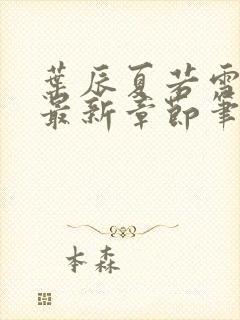 葉辰夏若雪
最新章節筆
本森